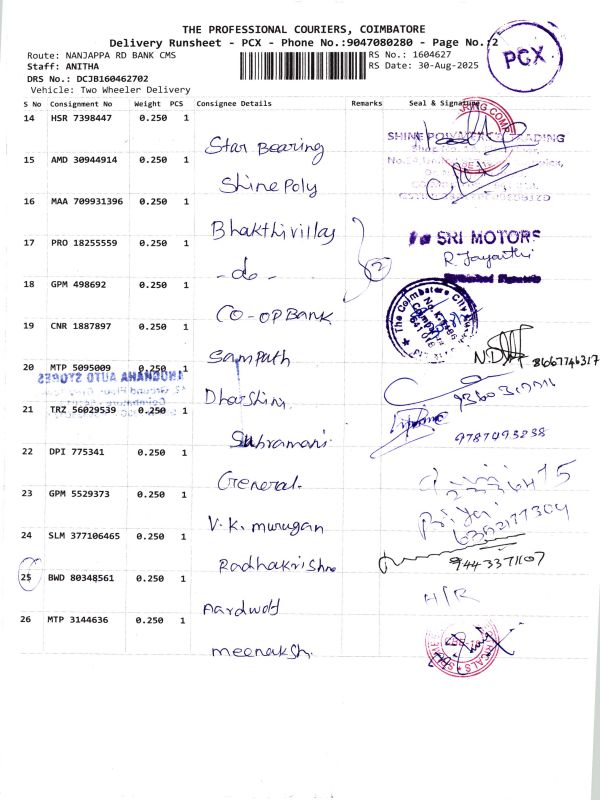 THE PROFESSIONAL COURIERS, COIMBATORE
Delivery Runsheet - PCX - Phone No.:9047080280 - Page No.:2
PCX
Route: NANJAPPA RD BANK CMS
RS No.: 1604627
Staff: ANITHA
RS Date: 30-Aug-2025
DRS No.: DCJB160462702
Vehicle: Two Wheeler Delivery
S No Consignment No Weight PCS Consignee Details Remarks Seal & Signature
14 HSR 7398447 0.250 1
Star Bearing
15 AMD 30944914 0.250 1
Shine Poly
16 MAA 709931396 0.250 1
Bhakthivillas
17 PRO 18255559 0.250 1
SRI MOTORS
R. Jayanthi
- do - 2
18 GPM 498692 0.250 1
CO-OP Bank
The Coimbatore City
19 CNR 1887897 0.250 1
Sampath
8667746317
20 MTP 5095009 0.250 1
ANUGRAHA AUTO STORES
Dharshini
21 TRZ 56029539 0.250 1
Subramani
9787493238
22 DPI 775341 0.250 1
General
23 GPM 5529373 0.250 1
V.K. murugan
24 SLM 377106465 0.250 1
Radhakrishna
9443371107
25 BWD 80348561 0.250 1
H/R
Aardwolf
26 MTP 3144636 0.250 1
meenakshi